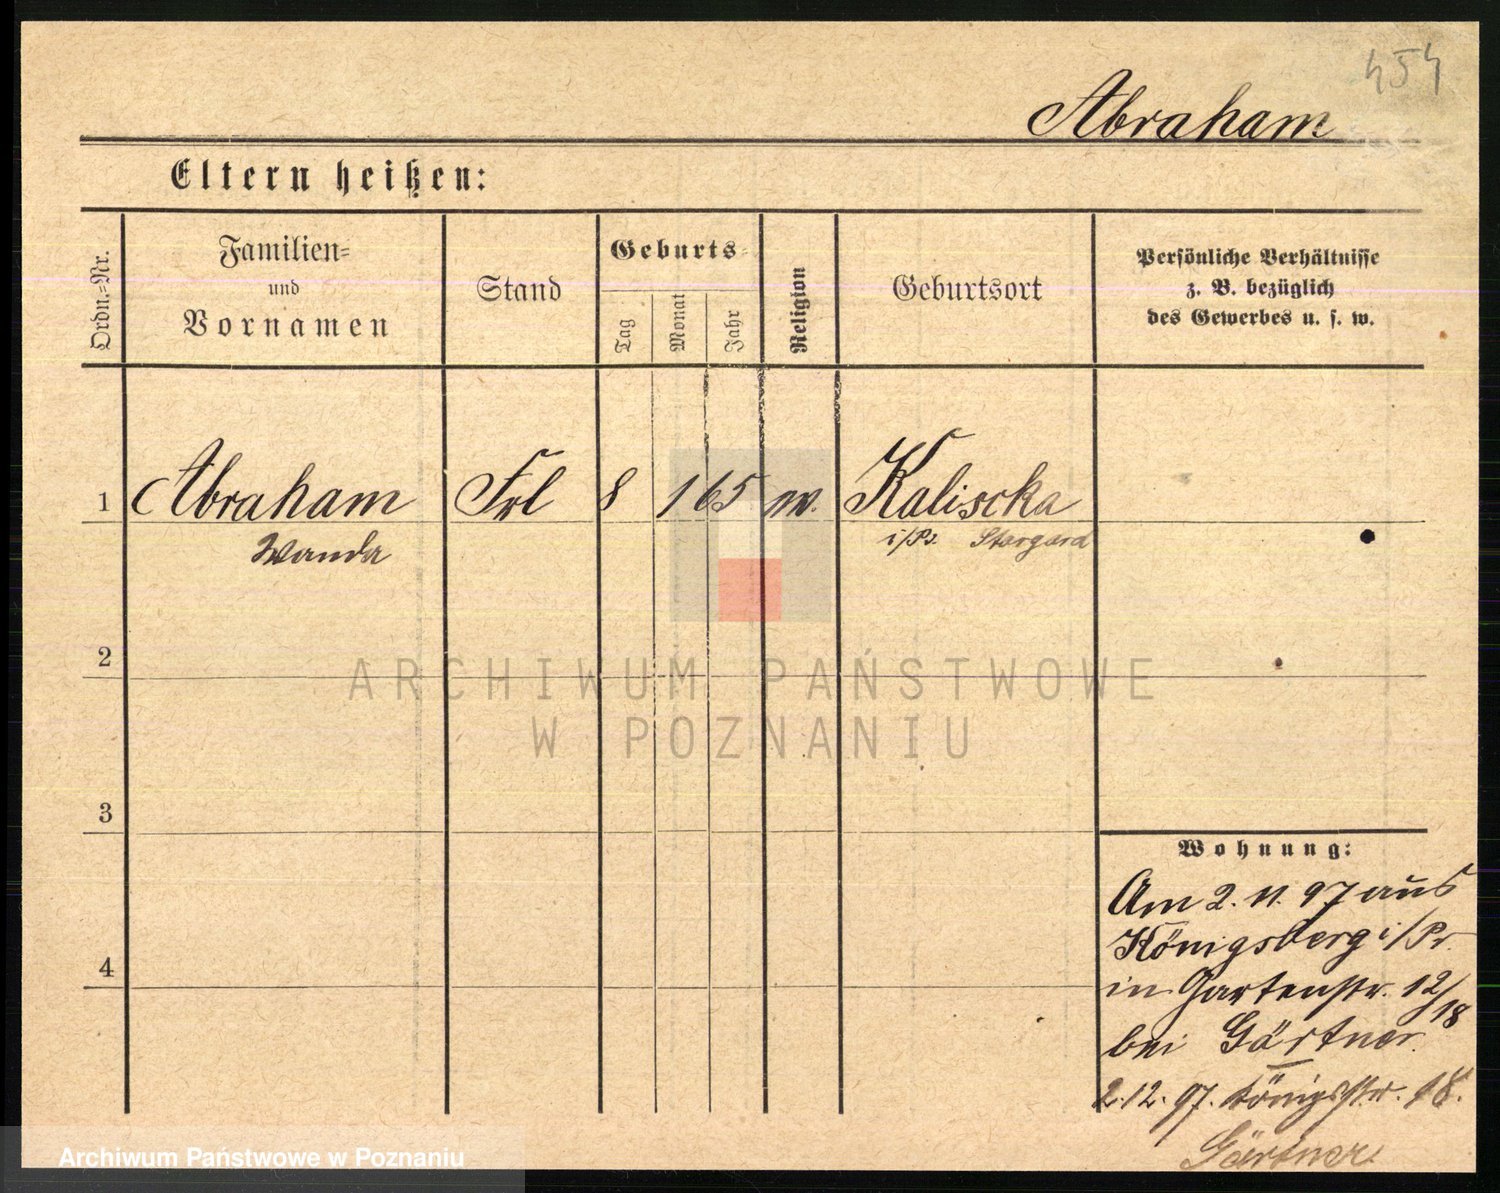 454
Abraham
Eltern heißen:
Ordn.=Nr.
Familien=
und
Vornamen
Stand
Geburts=
Tag
Monat
Jahr
Religion
Geburtsort
Persönliche Verhältnisse
z. B. bezüglich
des Gewerbes u. s. w.
1 Abraham Frl 8 1 65 m. Kaliscka
Wanda i/Pr. Stargard
2
ARCHIWUM PAŃSTWOWE
W POZNANIU
3
Wohnung:
Am 2. 11. 97 aus
Königsberg i/Pr.
4
in Gartenstr. 12/18
bei Gärtner.
2.12. 97. Königsstr. 18.
Gärtner
Archiwum Państwowe w Poznaniu